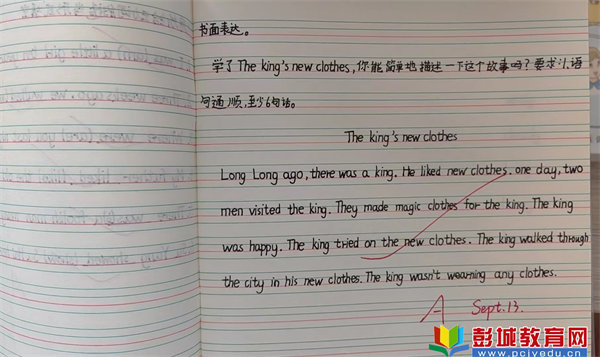 书面表达。
学了The king's new clothes,你能简单地描述一下这个故事吗?要求:1.语
句通顺,至少6句话。
The king's new clothes
Long Long ago, there was a king. He liked new clothes. one day, two
men visited the king. They made magic clothes for the king. The king
was happy. The king tried on the new clothes. The king walked through
the city in his new clothes. The king wasn't wearning any clothes.
A Sept.13.
彭城教育网
www.pcjyedu.cn